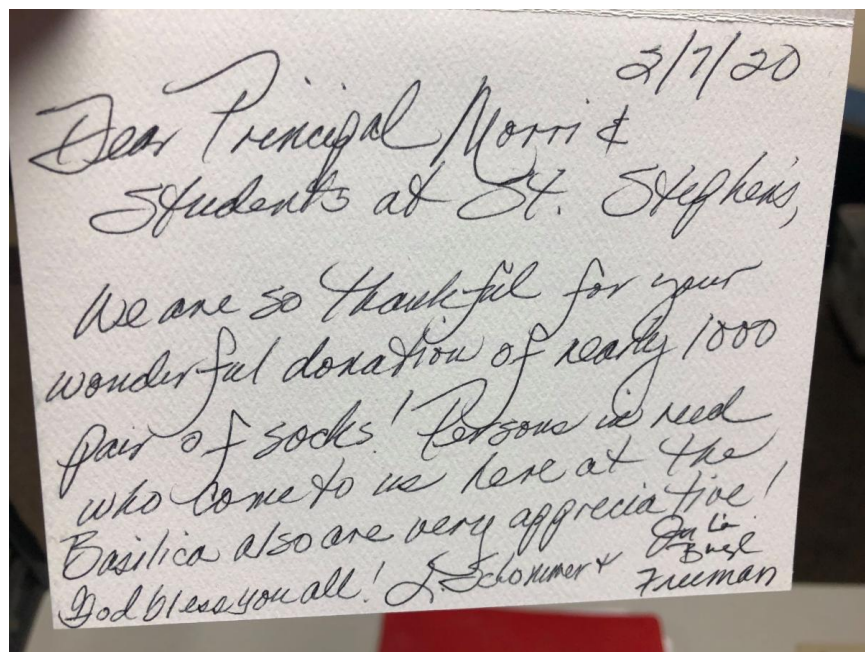 2/7/20
Dear Principal Morri &
Students at St. Stephen's,
We are so thankful for your
wonderful donation of nearly 1000
pair of socks! Persons in need
who come to us here at the
Basilica also are very appreciative!
God bless you all! L. Schommer &
Julia
Freeman